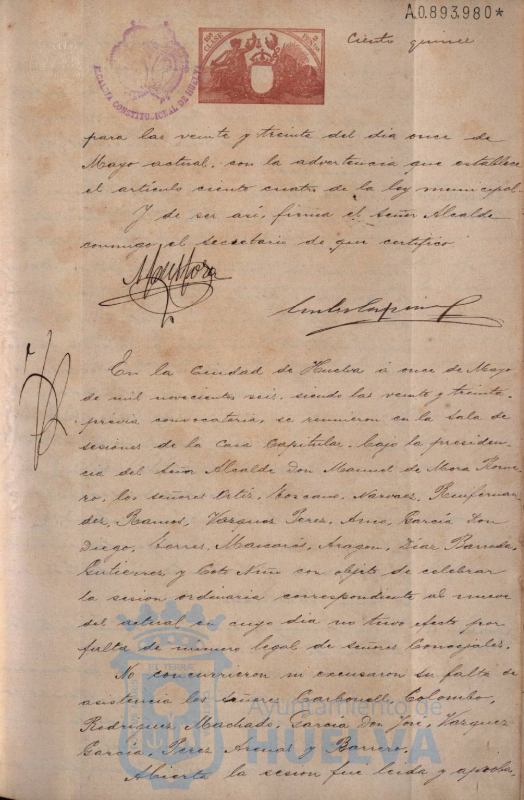 A.0.893.980*
Ciento quince
ALCALDIA CONSTITUCIONAL DE HUELVA
CLASE
para las veinte y treinta del dia once de
Mayo actual, con la advertencia que establece
el artículo ciento cuatro de la ley municipal.
Y de ser así, firma el Señor Alcalde
conmigo el secretario de que certifico
En la Ciudad de Huelva á once de Mayo
de mil novecientos seis, siendo las veinte y treinta
previa convocatoria, se reunieron en la Sala de
sesiones de la Casa Capitular, bajo la presiden-
cia del Señor Alcalde Don Manuel de Mora Rome-
ro, los señores Ortiz, Toscano, Narvaez, Fernan-
dez, Ramos, Vazquez Perez, García Don
Diego, Torres, Mascarós, Aragon, Diaz Barreda,
Gutierrez y Coto Niño con objeto de celebrar
la sesion ordinaria correspondiente al nueve
del actual en cuyo dia no tuvo efecto por
falta de número legal de señores Concejales.
No concurrieron ni excusaron su falta de
asistencia los señores Carbonell, Colombo,
Rodriguez Machado, García Don José, Vazquez
García, Perez Arenas y Barrero.
Abierta la sesion fue leida y aproba-
Ayuntamiento de
HUELVA